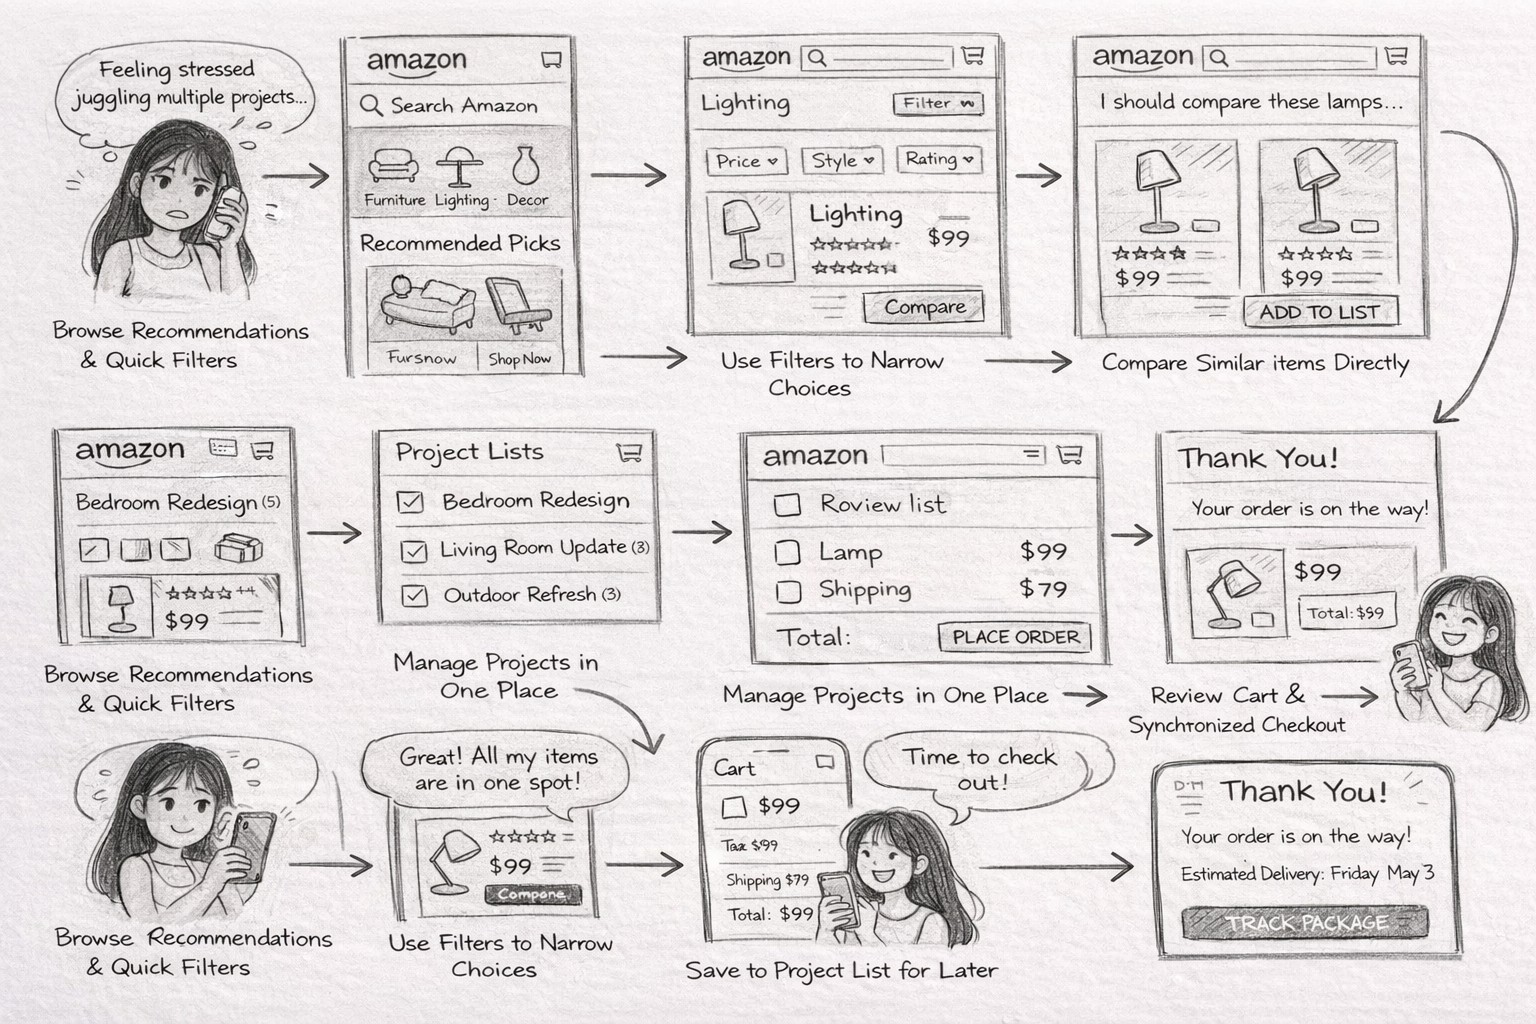 Feeling stressed
juggling multiple projects...
Browse Recommendations
& Quick Filters
amazon
Search Amazon
Furniture Lighting Decor
Recommended Picks
Fursnow Shop Now
amazon
Lighting Filter
Price Style Rating
Lighting
$99
Compare
Use Filters to Narrow
Choices
amazon
I should compare these lamps...
$99 $99
ADD TO LIST
Compare Similar items Directly
amazon
Bedroom Redesign (5)
$99
Browse Recommendations
& Quick Filters
Project Lists
Bedroom Redesign
Living Room Update (3)
Outdoor Refresh (3)
Manage Projects in
One Place
amazon
Roview list
Lamp $99
Shipping $79
Total: PLACE ORDER
Manage Projects in One Place
Thank You!
Your order is on the way!
$99
Total: $99
Review Cart &
Synchronized Checkout
Browse Recommendations
& Quick Filters
Great! All my items
are in one spot!
$99
Compone
Use Filters to Narrow
Choices
Cart
$99
Tax $99
Shipping $79
Total: $99
Time to check
out!
Save to Project List for Later
Thank You!
Your order is on the way!
Estimated Delivery: Friday May 3
TRACK PACKAGE